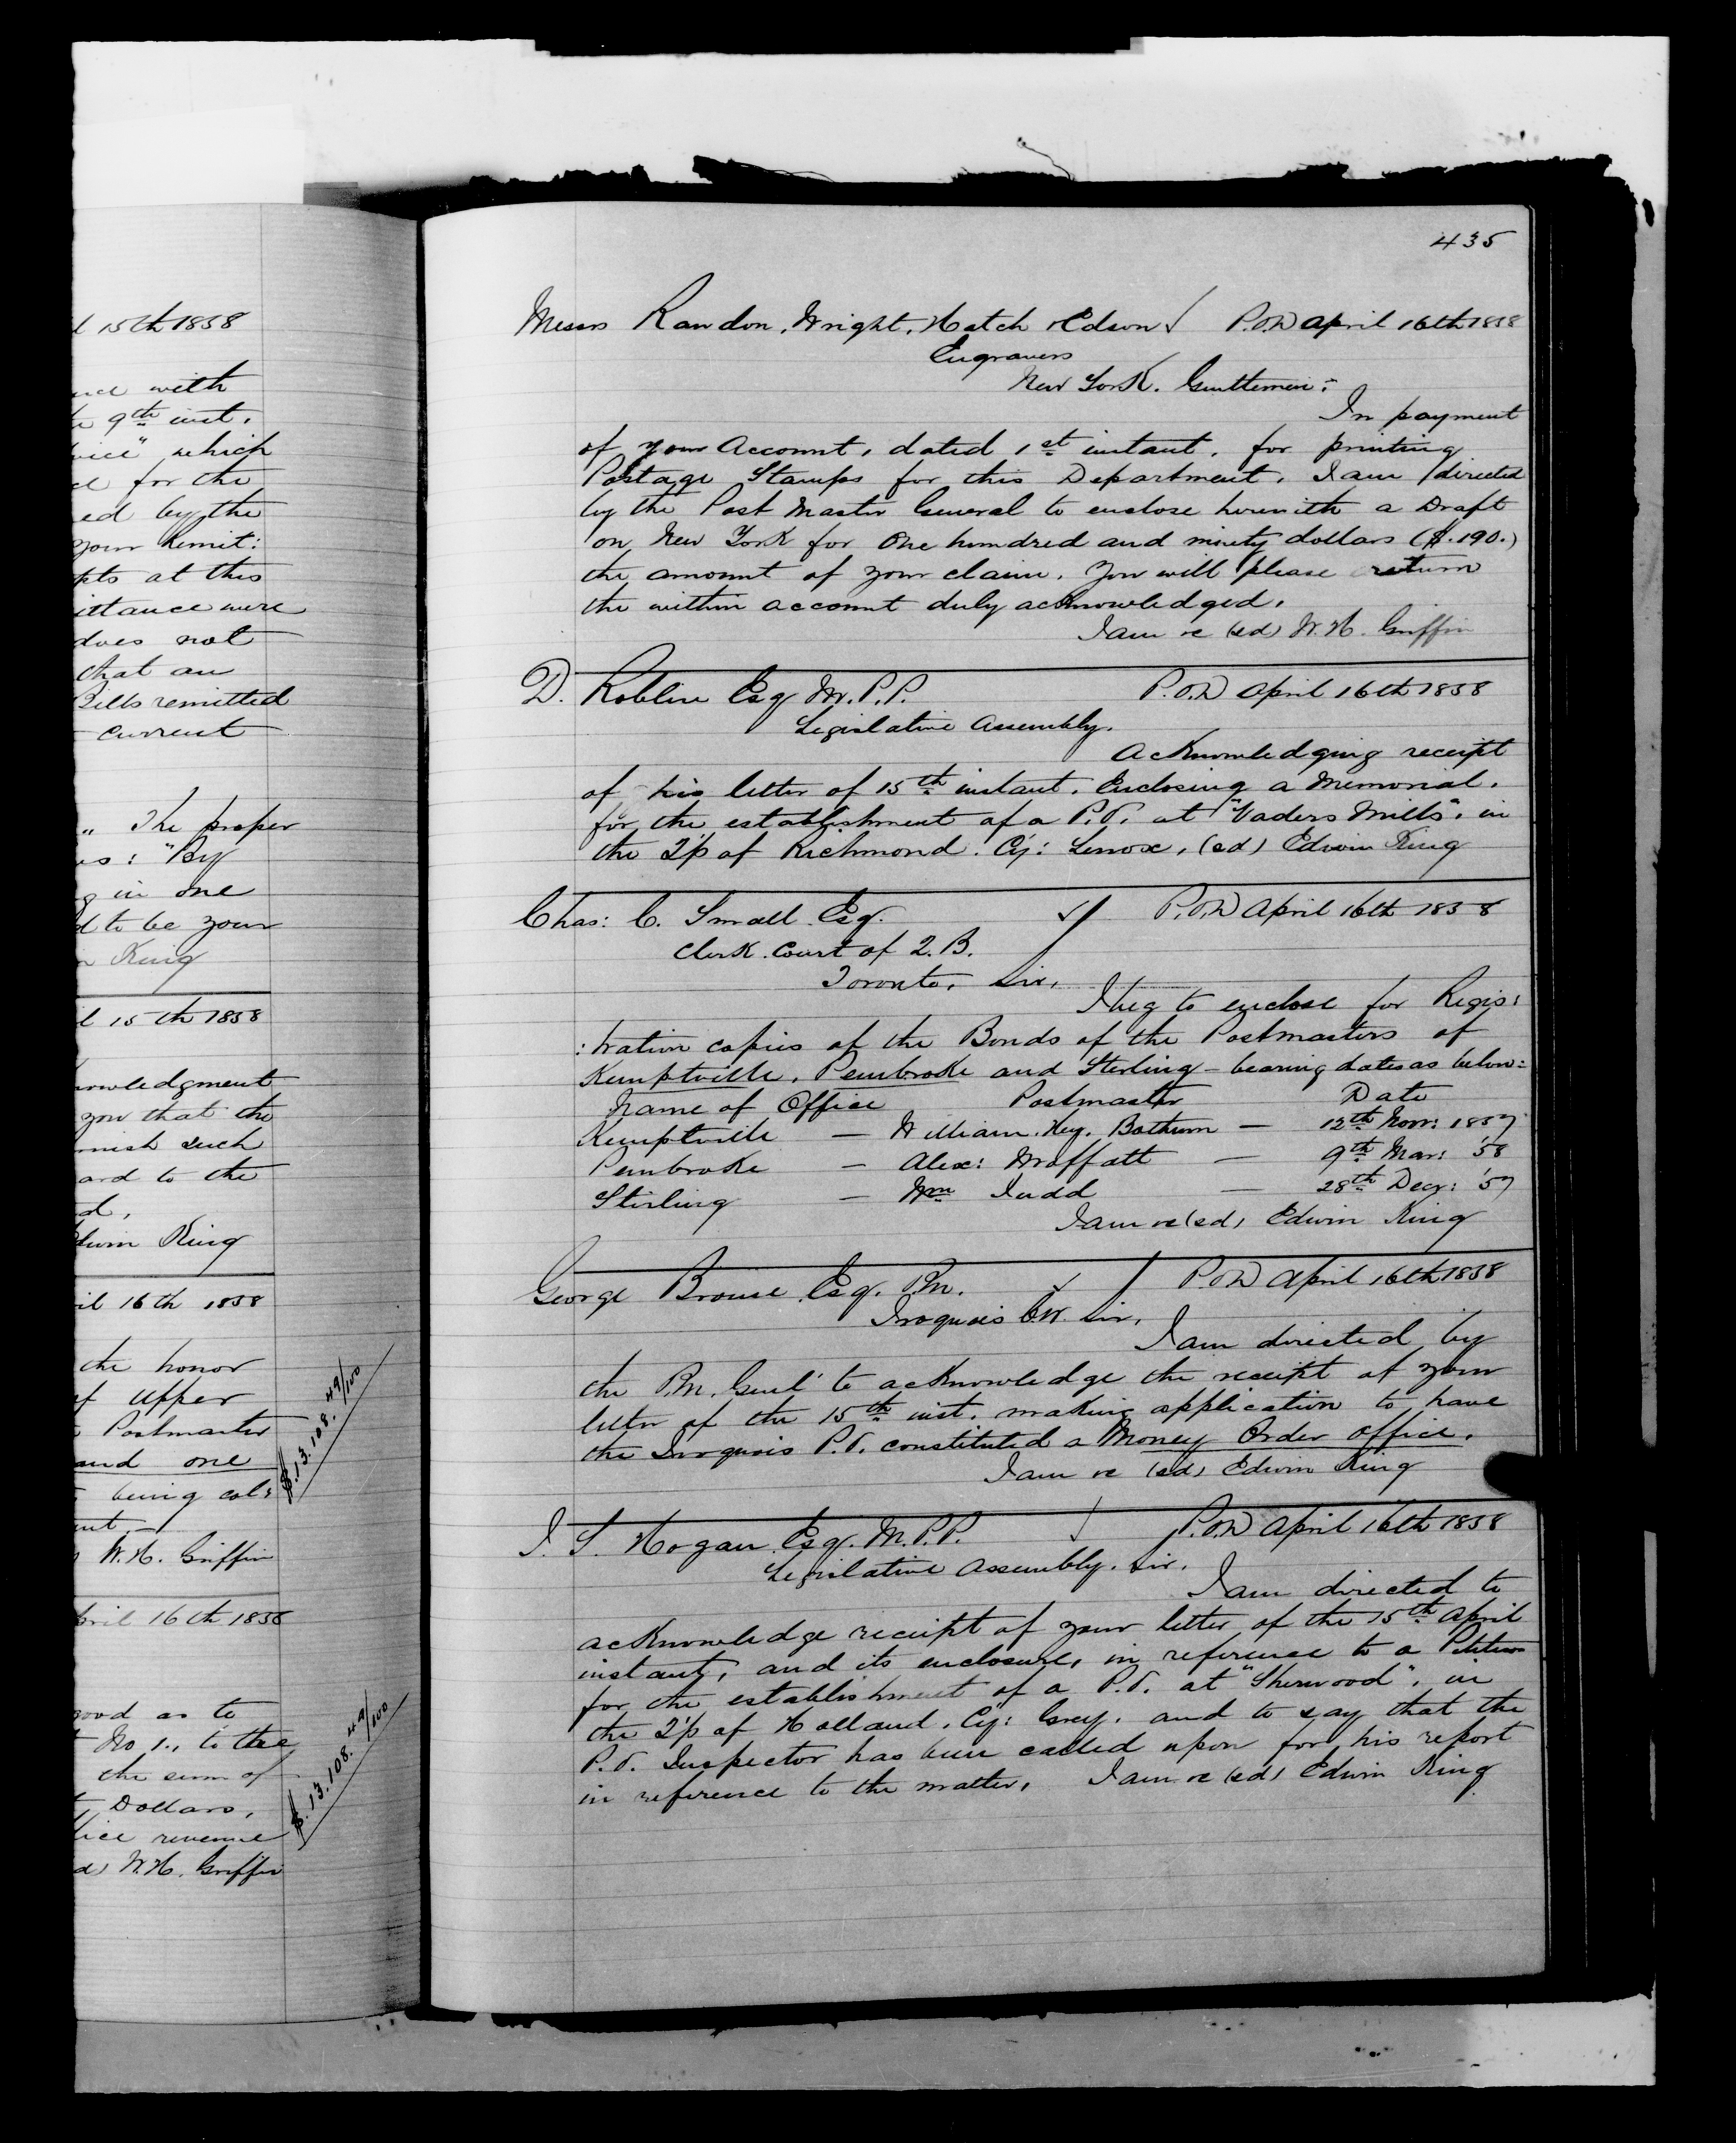 l 15th 1858
nce with
e 9th inst.
vice" which
d for the
ed by the
your remit:
pts at this
ittance were
does not
that an
Bills remitted
current
" The proper
is: "By
g in one
d to be your
n King
l 15th 1858
nowledgment
you that the
nish such
ard to the
d,
dwin King
il 16th 1858
the honor
of Upper
Postmaster
and one
being col:
nt
W. H. Griffin
$.13.108.49/100
pril 16th 1858
good as to
No 1., to the
the sum of
Dollars,
fice revenue
d) W. H. Griffin
$.13.108.49/100
435
Messrs Rawdon, Wright, Hatch & Edson P.O.D April 16th 1858
Engravers
New York. Gentlemen:
In payment
of your Account, dated 1st instant, for printing
Postage Stamps for this Department. I am directed
by the Post Master General to enclose herewith a Draft
on New York for One hundred and ninety dollars ($.190.)
the amount of your claim. You will please return
the within account duly acknowledged.
I am &c (sd) W. H. Griffin
D. Roblin Esq M.P.P. P.O.D April 16th 1858
Legislative Assembly.
Acknowledging receipt
of his letter of 15th instant. Enclosing a Memorial.
for the establishment of a P.O. at "Vaders Mills". in
the T'p of Richmond. Cy: Lenox, (sd) Edwin King
Chas: C. Small Esq. P.O.D April 16th 1858
Clerk Court of Q.B.
Toronto. Sir,
I beg to enclose for Regis:
:tration copies of the Bonds of the Postmasters of
Kemptville, Pembroke and Sterling - bearing dates as below:
Name of Office Postmaster Date
Kemptville — William Hey. Bottum — 12th Novr: 1857
Pembroke — Alex: Moffatt — 9th Mar: '58
Stirling — Wm Judd — 28th Decr: '57
I am &c (sd) Edwin King
George Brouse Esq. P.M. P.O.D April 16th 1858
Iroquois C.W. Sir,
I am directed by
the P.M. Genl' to acknowledge the receipt of your
letter of the 15th inst. making application to have
the Iroquois P.O. constituted a Money Order Office.
I am &c (sd) Edwin King
J. S. Hogan Esq. M.P.P. P.O.D April 16th 1858
Legislative Assembly. Sir.
I am directed to
acknowledge receipt of your letter of the 15th April
instant, and its enclosure, in reference to a Petition
for the establishment of a P.O. at "Sherwood", in
the T'p of Holland. Cy: Grey. and to say that the
P.O. Inspector has been called upon for his report
in reference to the matter, I am &c (sd) Edwin King